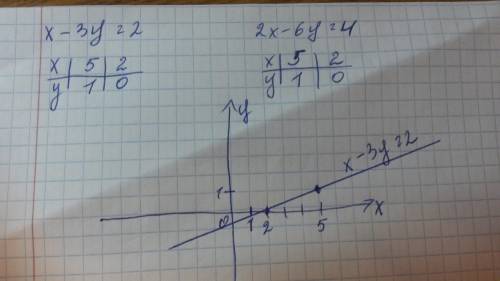 x - 3y = 2
2x - 6y = 4
x | 5 | 2
y | 1 | 0
x | 5 | 2
y | 1 | 0
y
x - 3y = 2
1
0
1 2 5
x